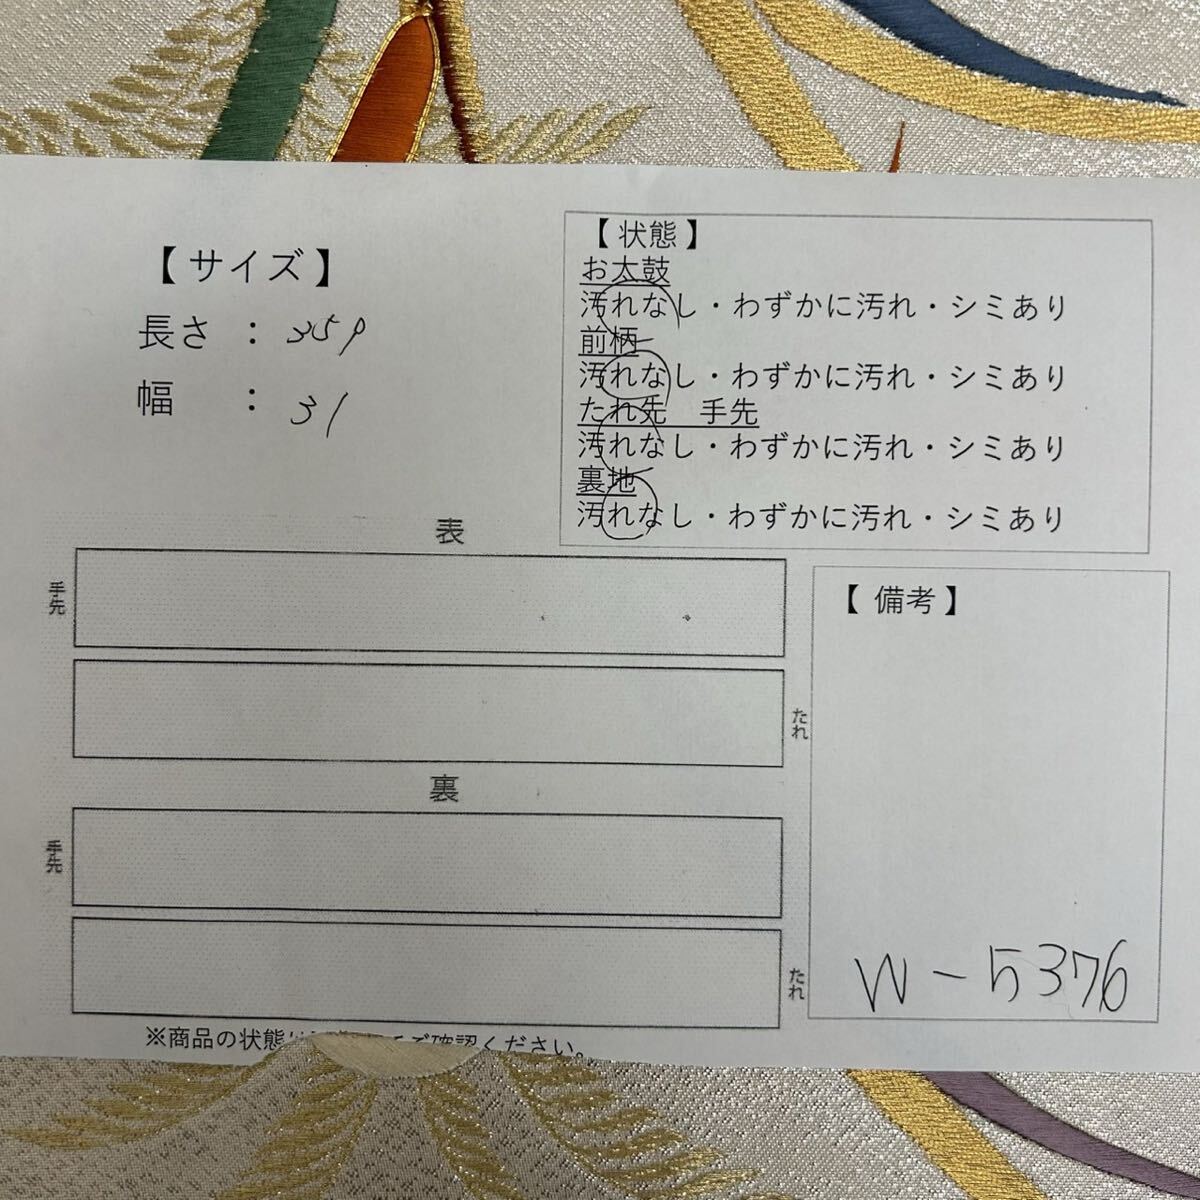 【 サイズ 】
長さ : 359
幅 : 31
【 状態 】
お太鼓
汚れなし・わずかに汚れ・シミあり
前柄
汚れなし・わずかに汚れ・シミあり
たれ先 手先
汚れなし・わずかに汚れ・シミあり
裏地
汚れなし・わずかに汚れ・シミあり
表
手先
たれ
裏
手先
たれ
【 備考 】
W-5376
※商品の状態は
てご確認ください。